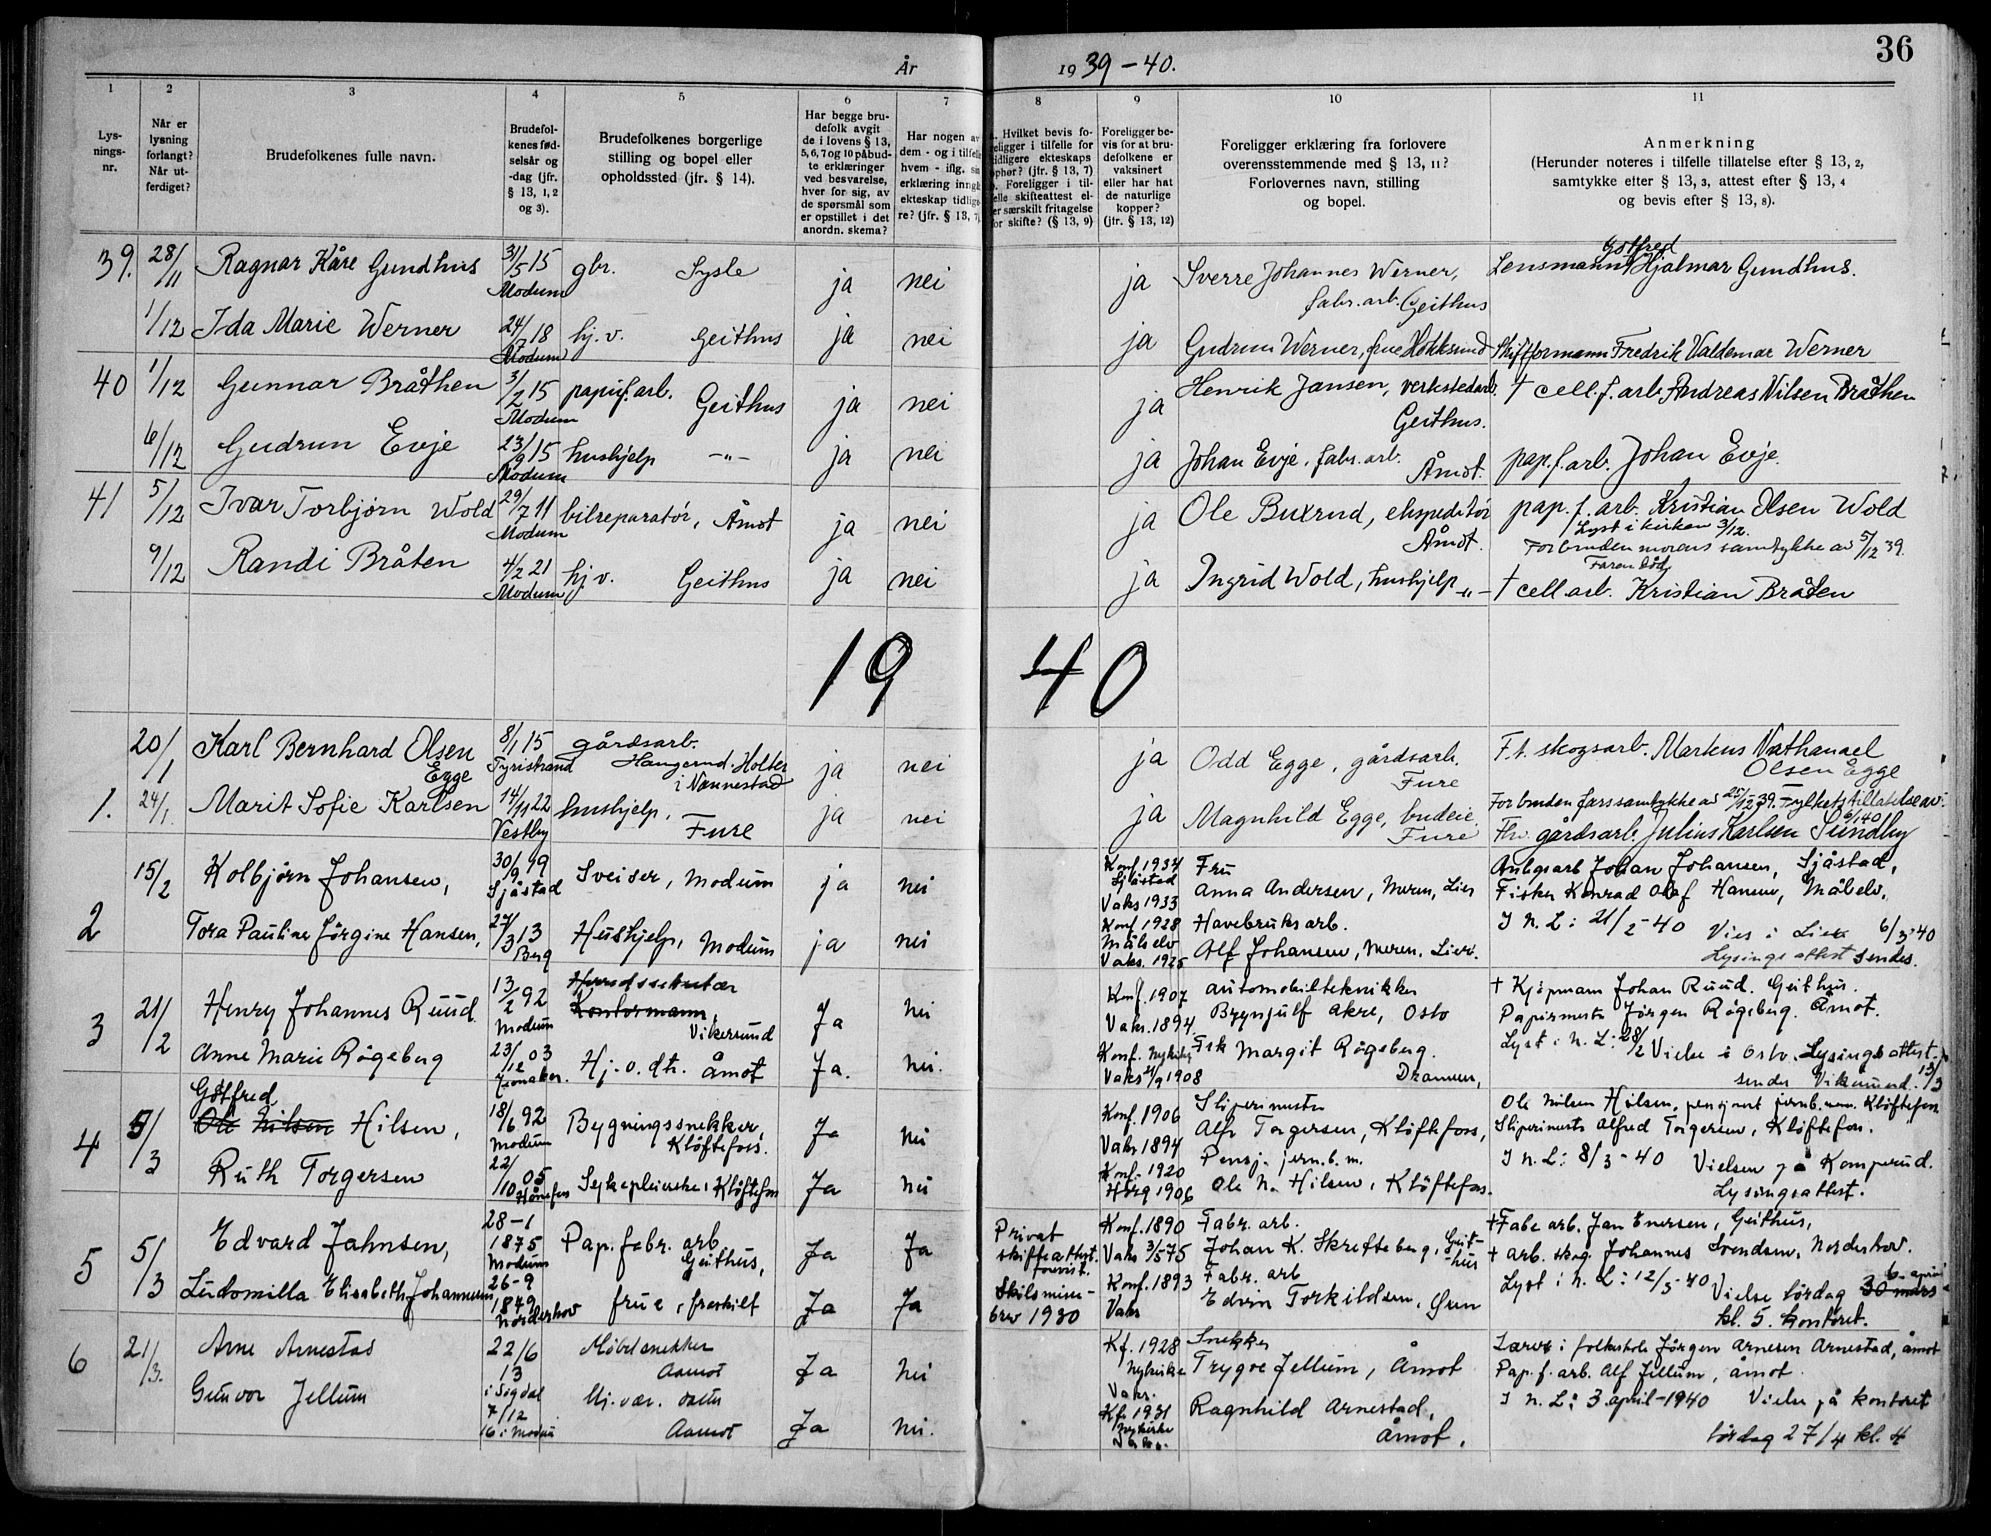 36
År 1939-40.
1 2 3 4 5 6 7 8 9 10 11
Lys-
nings-
nr.
Når er
lysning
forlangt?
Når ut-
ferdiget?
Brudefolkenes fulle navn.
Brudefol-
kenes fød-
selsår og
-dag (jfr.
§ 13, 1, 2
og 3).
Brudefolkenes borgerlige
stilling og bopel eller
opholdssted (jfr. § 14).
Har begge bru-
defolk avgit
de i lovens § 13,
5, 6, 7 og 10 påbud-
te erklæringer
ved besvarelse,
hver for sig, av
de spørsmål som
er opstillet i det
anordn. skema?
Har nogen av
dem - og i tilfelle
hvem - iflg. sin
erklæring inngå
ekteskap tidlige-
re? (jfr. § 13, 7)
Hvilket bevis fo-
religger i tilfelle for
tidligere ekteskaps
ophør? (jfr. § 13, 7)
Foreligger i til-
felle skifteattest el-
er særskilt fritagelse
for skifte? (§ 13, 9)
Foreligger be-
vis for at bru-
defolkene er
vaksinert
eller har hat
de naturlige
kopper?
(jfr. § 13, 12)
Foreligger erklæring fra forlovere
overensstemmende med § 13, 11?
Forlovernes navn, stilling
og bopel.
Anmerkning
(Herunder noteres i tilfelle tillatelse efter § 13, 2,
samtykke efter § 13, 3, attest efter § 13, 4
og bevis efter § 13, 8).
39. 28/11 Ragnar Kåre Gundhus 31/5 15 Modum gbr. Sysle ja nei ja Sverre Johannes Werner, fabr. arb. Geithus Lensmann Gotfred Hjalmar Gundhus.
1/12 Ida Marie Werner 24/7 18 Modum hj. v. Geithus ja nei ja Gudrun Werner, frue Hokksund Skifformann Fredrik Valdemar Werner
40 1/12 Gunnar Bråthen 3/2 15 Modum papirf. arb. Geithus ja nei ja Henrik Jansen, verkstedarb. Geithus. † cell. f. arb. Andreas Nilsen Bråthen
6/12 Gudrun Evje 23/9 15 Modum hushjelp -"- ja nei ja Johan Evje, fabr. arb. Åmot. pap. f. arb. Johan Evje.
41 5/12 Ivar Torbjørn Wold 29/7 11 Modum bilreparatør, Åmot ja nei ja Ole Buxrud, ekspeditør Åmot. pap. f. arb. Kristian Olsen Wold
Lyst i kirken 3/12.
For bruden morens samtykke av 5/12 39.
Faren død
9/12 Randi Bråten 4/2 21 Modum hj. v. Geithus ja nei ja Ingrid Wold, hushjelp -"- † cell arb. Kristian Bråten
19 40
20/1 Karl Bernhard Olsen Egge 8/1 15 Tyristrand gårdsarb. Haugerud. Holter i Nannestad ja nei ja Odd Egge, gårdsarb. Fure F. t. skogsarb. Markus Nathanael Olsen Egge
1. 24/1. Marit Sofie Karlsen 14/11 22 Vestby hushjelp, Fure ja nei ja Magnhild Egge, budeie Fure For bruden fars samtykke av 25/12 39. Fylkets tillatelse av 6/1 40
Fhv. gårdsarb. Julius Karlsen Sundby
15/2 Kolbjørn Johansen, 30/9 19 Sjåstad Sveiser, Modum ja nei Konf. 1934 Sjåstad Vaks 1933 Fru Anna Andersen, Meren, Lier Anlegsarb Johan Johansen, Sjåstad,
Fisker Konrad Olaf Hansen, Målselv.
2 Tora Pauline Jörgine Hansen, 27/3 13 Berg Hushjelp, Modum ja nei Konf. 1928 Målselv Vaks. 1925 Havebruksarb. Alf Johansen, Meren, Lier. I N. L: 21/2-40 Vies i Lier 6/3-40
Lysings attest sendes.
3 21/2 Henry Johannes Ruud 13/2 92 Modum Herredssekretær Kontormann, Vikersund Ja nei Konf. 1907 Vaks. 1894. Automobiltekniker Brynjulf Akre, Oslo † Kjøpmann Johan Ruud. Geithus.
Papirmester Jörgen Rögeberg. Åmot.
Anne Marie Rögeberg 23/12 03 Hj. v. dtr. Åmot Ja. nei. Konf. Nykirke Vaks 4/9 1908 Frk Margit Rögeberg. Drammen, Lyst i N. L: 28/2 Vielse i Oslo. Lysings attest.
sendes Vikersund 13/3
4 5/3 Gotfred Ole Nilsen Hilsen, 18/6 92 Modum Bygningssnekker, Klöftefoss. Ja nei Konf. 1906 Vaks 1894 Sliperimester Alfr Torgersen, Klöftefoss, Ole Nilsen Hilsen, pensjonert jernb. m. Klöftefoss
Sliperimester Alfred Torgersen, Klöftefoss.
Ruth Torgersen 22/10 05 Hönefoss Sykepleierske, Klöftefoss Ja nei Konf. 1920 1906 Pensj. jern. b. m. Ole N. Hilsen, Klöftefoss. I N. L: 8/3-40 Vielsen på Komperud.
Lysingsattest.
5 5/3 Edvard Jahnsen, 28-1 1875 Modum Pap. fabr. arb Geithus, Ja Ja Privat skifteattest. forevist. Konf. 1890 Vaks 3/5 75 Fabr. arb. Johan K. Skrefteberg, Geithus † Fabr arb. Jan Enersen, Geithus,
† Arb. Johannes Svendsen, Norderhov.
Ludomilla Elisabeth Johannesen 26-9 1879 Norderhov frue, fraskilt Ja Ja Skilsmisse- brev 1930 Konf. 1893 Vaks Fabr. arb Edvin Torkildsen, Lyst i N. L: 12/3-40 Vielse lördag 30 mars 6. april
kl. 5. kontoret.
6 21/3. Arne Arnestad 22/6 13 i Sigdal Möbelsnekker Aamot Ja nei Kf. 1928 Nykirke Vaks. Snekker Trygve Jellum, Åmot Lærer i folkeskole Jörgen Arnesen Arnestad, Åmot
Pap. f. arb. Alf Jellum, Åmot.
Gunvor Jellum 7/12 16 i Modum Hj. vær. datter Aamot Ja nei. Kf. 1931 Nykirke Ragnhild Arnestad, Åmot. I N. L: 3 april-1940 Vielse på kontoret
lördag 27/4 kl. 4